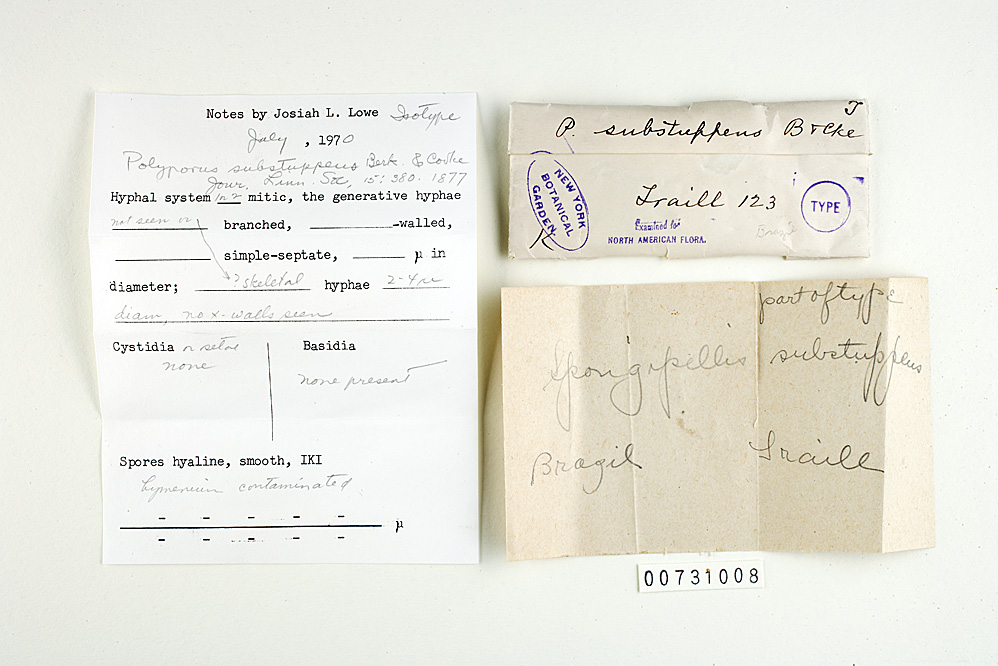 Notes by Josiah L. Lowe Isotype
July, 1970
Polyporus substuppens Berk. & Cooke
Jour. Linn. Soc, 15: 380. 1877
Hyphal system 1 n 2 mitic, the generative hyphae
not seen or branched, ________-walled,
________ simple-septate, _____ µ in
diameter; ? skeletal hyphae 2-4 µ
diam, no x-walls seen
Cystidia or setae
none
Basidia
none present
Spores hyaline, smooth, IKI
hymenium contaminated
µ
T
P. substuppens B & Cke
NEW YORK
BOTANICAL
GARDEN.
K
Traill 123
TYPE
Examined for
NORTH AMERICAN FLORA.
Brazil
part of type
Spongipellis substuppens
Brazil Traill
00731008